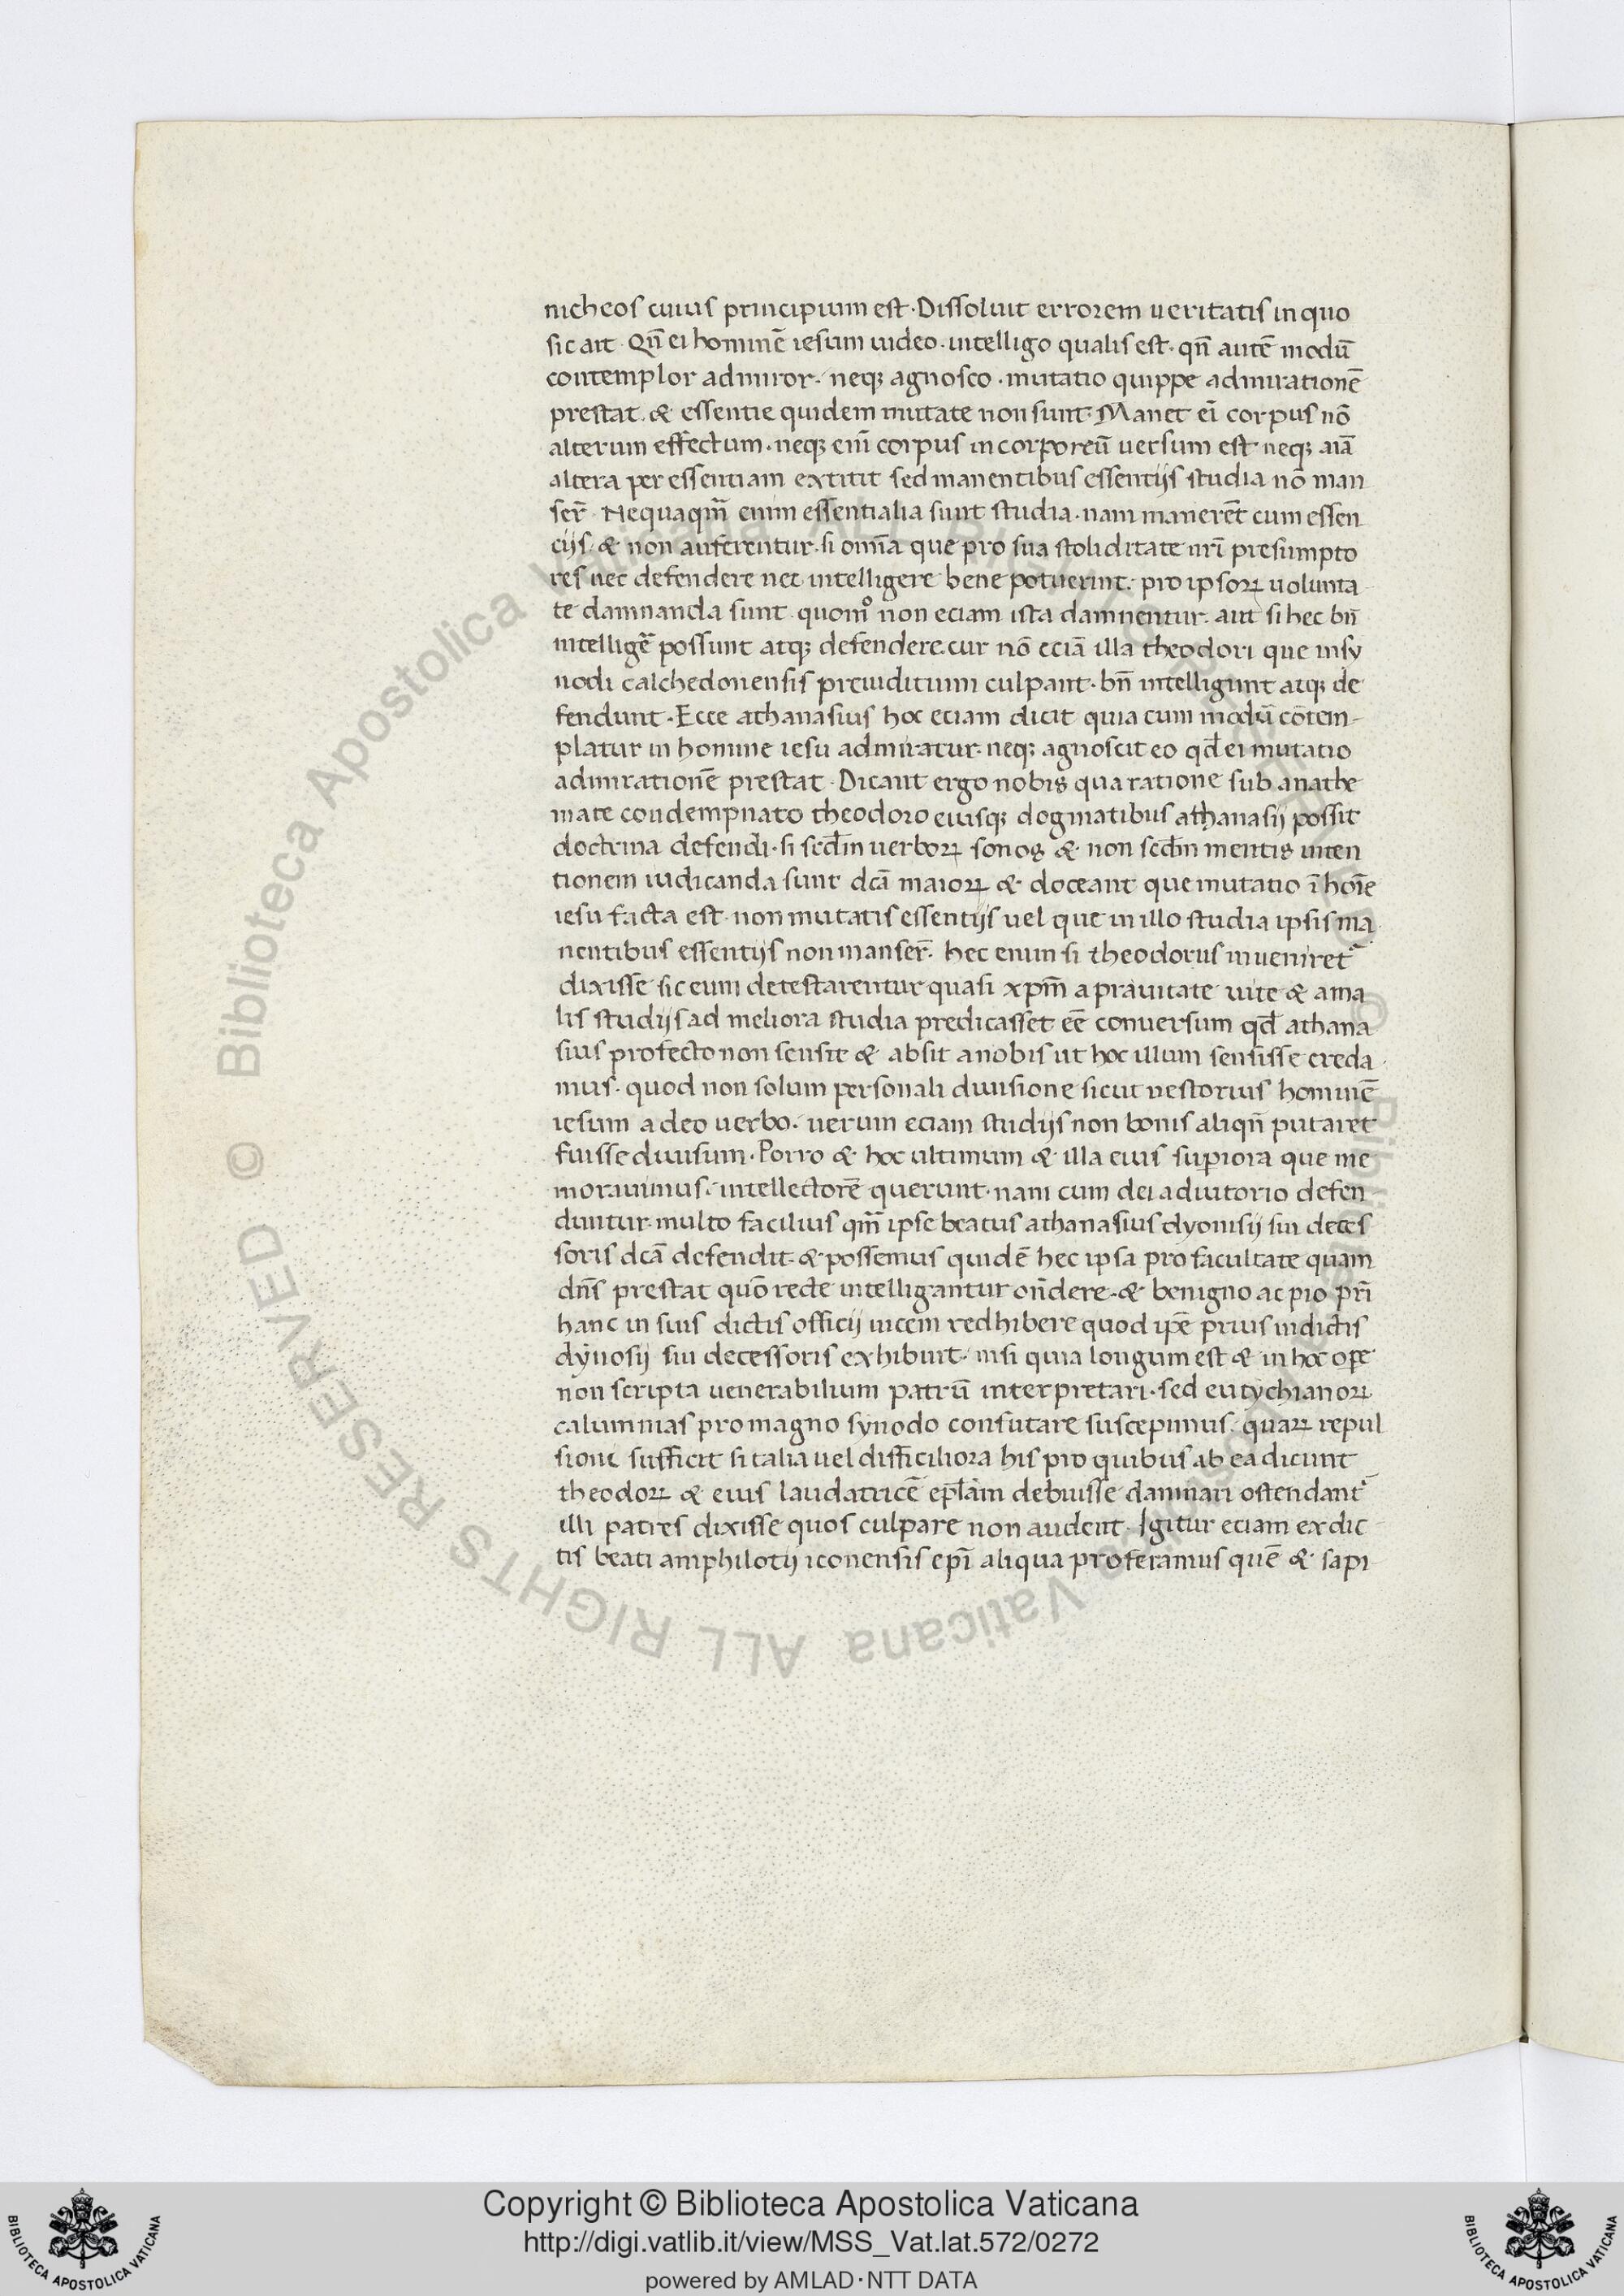 nicheos cuius principium est · Dissoluit errorem ueritatis in quo
sic ait · Qn̄ ei hominē iesum uideo · intelligo qualis est · qn̄ autē modū
contemplor admiror · neqꝫ agnosco · mutatio quippe admirationē
prestat · & essentie quidem mutate non sunt · Manet ei̅ corpus nō
alterum effectum · neqꝫ eni̅ corpus incorporeū uersum est neqꝫ aiā
altera per essentiam extitit sed manentibus essentijs studia nō man
ser̄ · Nequaqm̄ enim essentialia sunt studia · nam manerēt cum essen
cijs · & non auferentur · si omīa que pro sua stoliditate nr̄i presumpto
res nec defendere nec intelligere bene potuerint · pro ipsoꝝ uolunta
te damnanda sunt · quomͦ non eciam ista damnentur · aut si hec bn̄
intelligēr possunt atqꝫ defendere cur nō eciā illa theodori que in sy
nodi calchedonensis preiuditium culpant · bn̄ intelligunt atqꝫ de
fendunt · Ecce athanasius hoc eciam dicit quia cum modū cōtem-
platur in homine iesu admiratur · neqꝫ agnoscit eo qd̄ ei mutatio
admirationē prestat · Dicant ergo nobis qua ratione sub anathe
mate condempnato theodoro eiusqꝫ dogmatibus athanasij possit
doctrina defendi · si scd̄m uerboꝝ sonos & non scd̄m mentis inten
tionem iudicanda sunt dc̄a maioꝝ & doceant que mutatio ī hoīe
iesu facta est · non mutatis essentijs uel que in illo studia ipsis ma
nentibus essentijs non manser̄ · hec enim si theodorus inueniret᷑
dixisse sic eum detestarentur quasi xpm̄ a prauitate uite & a ma
lis studijs ad meliora studia predicasset eē conuersum qd̄ athana
sius profecto non sensit & absit a nobis ut hoc illum sensisse creda
mus · quod non solum personali diuisione sicut nestorius hominē
iesum a deo uerbo · uerum eciam studijs non bonis aliqn̄ putaret
fuisse diuisum · Porro & hoc ultimum & illa eius supiora que me
morauimus · intellectorē querunt · nam cum dei adiutorio defen
duntur · multo facilius qm̄ ipse beatus athanasius dyonisij sui deces
soris dc̄a defendit · & possemus quidē hec ipsa pro facultate quam
dn̄s prestat quō recte intelligantur on̄dere · & benigno ac pio pr̄i
hanc in suis dictis officij uicem redhibere quod ipē prius in dictis
dynosij sui decessoris exhibuit · nisi quia longum est & in hoc ope
non scripta uenerabilium patrū interpretari · sed eutychianoꝝ
calumnias pro magno synodo confutare suscepimus · quaꝝ repul
sioni sufficit si talia uel difficiliora his pro quibus ab ea dicunt
theodoꝝ & eius laudatricē epl̄am debuisse damnari ostendant᷑
illi patres dixisse quos culpare non audent · Igitur eciam ex dic
tis beati amphilotij iconensis epi̅ aliqua proferamus quē & sapi
Copyright © Biblioteca Apostolica Vaticana
http://digi.vatlib.it/view/MSS_Vat.lat.572/0272
powered by AMLAD·NTT DATA
BIBLIOTECA APOSTOLICA VATICANA
BIBLIOTECA APOSTOLICA VATICANA
© Biblioteca Apostolica Vaticana ALL RIGHTS RESERVED